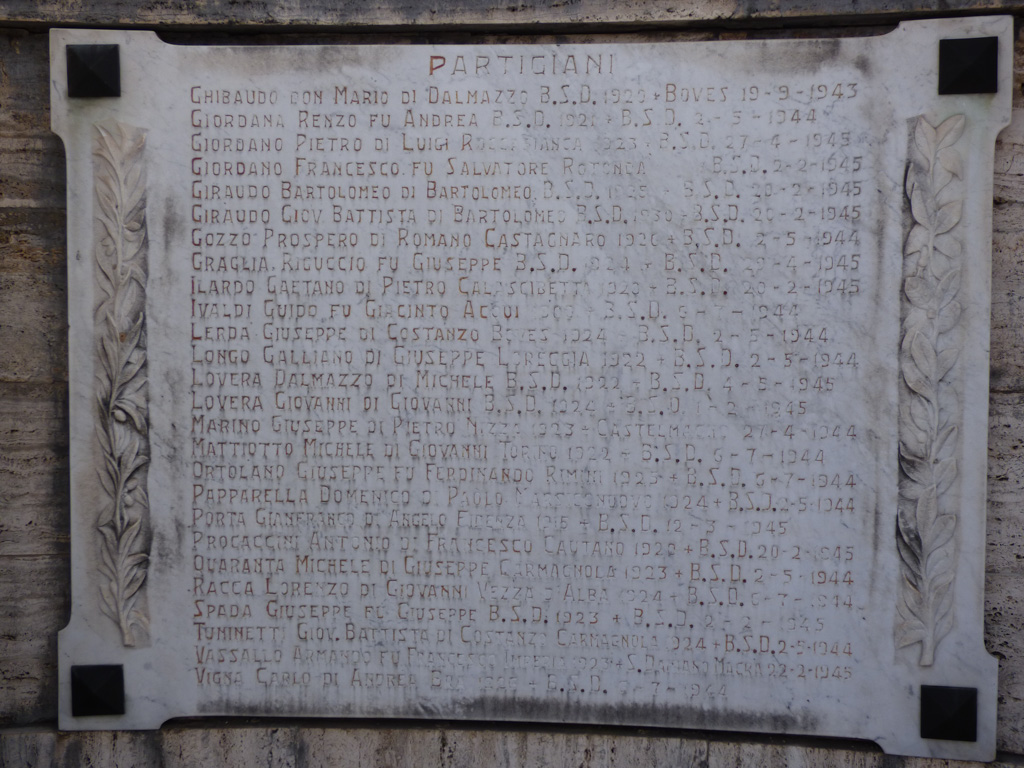 PARTIGIANI
GHIBAUDO DON MARIO DI DALMAZZO B.S.D. 1920 + BOVES 19-9-1943
GIORDANA RENZO FU ANDREA B.S.D. 1921 + B.S.D. 2-5-1944
GIORDANO PIETRO DI LUIGI 1923 + B.S.D. 27-4-1945
GIORDANO FRANCESCO FU SALVATORE ROTONDA B.S.D. 2-2-1945
GIRAUDO BARTOLOMEO DI BARTOLOMEO B.S.D. + B.S.D. 20-2-1945
GIRAUDO GIOV. BATTISTA DI BARTOLOMEO B.S.D. 1930 + B.S.D. 20-2-1945
GOZZO PROSPERO DI ROMANO CASTAGNARO 1920 + B.S.D. 2-5-1944
GRAGLIA RIGUCCIO FU GIUSEPPE B.S.D. 1924 + B.S.D. -4-1945
ILARDO GAETANO DI PIETRO CALASCIBETTA 1920 + B.S.D. 20-2-1945
IVALDI GUIDO FU GIACINTO ACQUI + B.S.D. -7-1944
LERDA GIUSEPPE DI COSTANZO BOVES 1924 B.S.D. 2-5-1944
LONGO GALLIANO DI GIUSEPPE LOREGGIA 1922 + B.S.D. 2-5-1944
LOVERA DALMAZZO DI MICHELE B.S.D. 1922 + B.S.D. 4-5-1945
LOVERA GIOVANNI DI GIOVANNI B.S.D. 1924 + B.S.D. 1-2-1945
MARINO GIUSEPPE DI PIETRO NIZZA 1923 + CASTELMAGNO 27-4-1944
MATTIOTTO MICHELE DI GIOVANNI TORINO 1922 + B.S.D. 6-7-1944
ORTOLANO GIUSEPPE FU FERDINANDO RIMINI 1923 + B.S.D. 6-7-1944
PAPPARELLA DOMENICO DI PAOLO 1924 + B.S.D. 2-5-1944
PORTA GIANFRANCO DI ANGELO FIDENZA 1918 + B.S.D. 12-3-1945
PROCACCINI ANTONIO DI FRANCESCO 1920 + B.S.D. 20-2-1945
QUARANTA MICHELE DI GIUSEPPE CARMAGNOLA 1923 + B.S.D. 2-5-1944
RACCA LORENZO DI GIOVANNI VEZZA D'ALBA 1924 + B.S.D. 6-7-1944
SPADA GIUSEPPE FU GIUSEPPE B.S.D. 1923 + B.S.D. 2-2-1945
TUNINETTI GIOV. BATTISTA DI COSTANZO CARMAGNOLA 1924 + B.S.D. 2-5-1944
VASSALLO ARMANDO FU FRANCESCO IMPERIA 1923 + S. DAMIANO MACRA 22-2-1945
VIGNA CARLO DI ANDREA + B.S.D. -7-1944